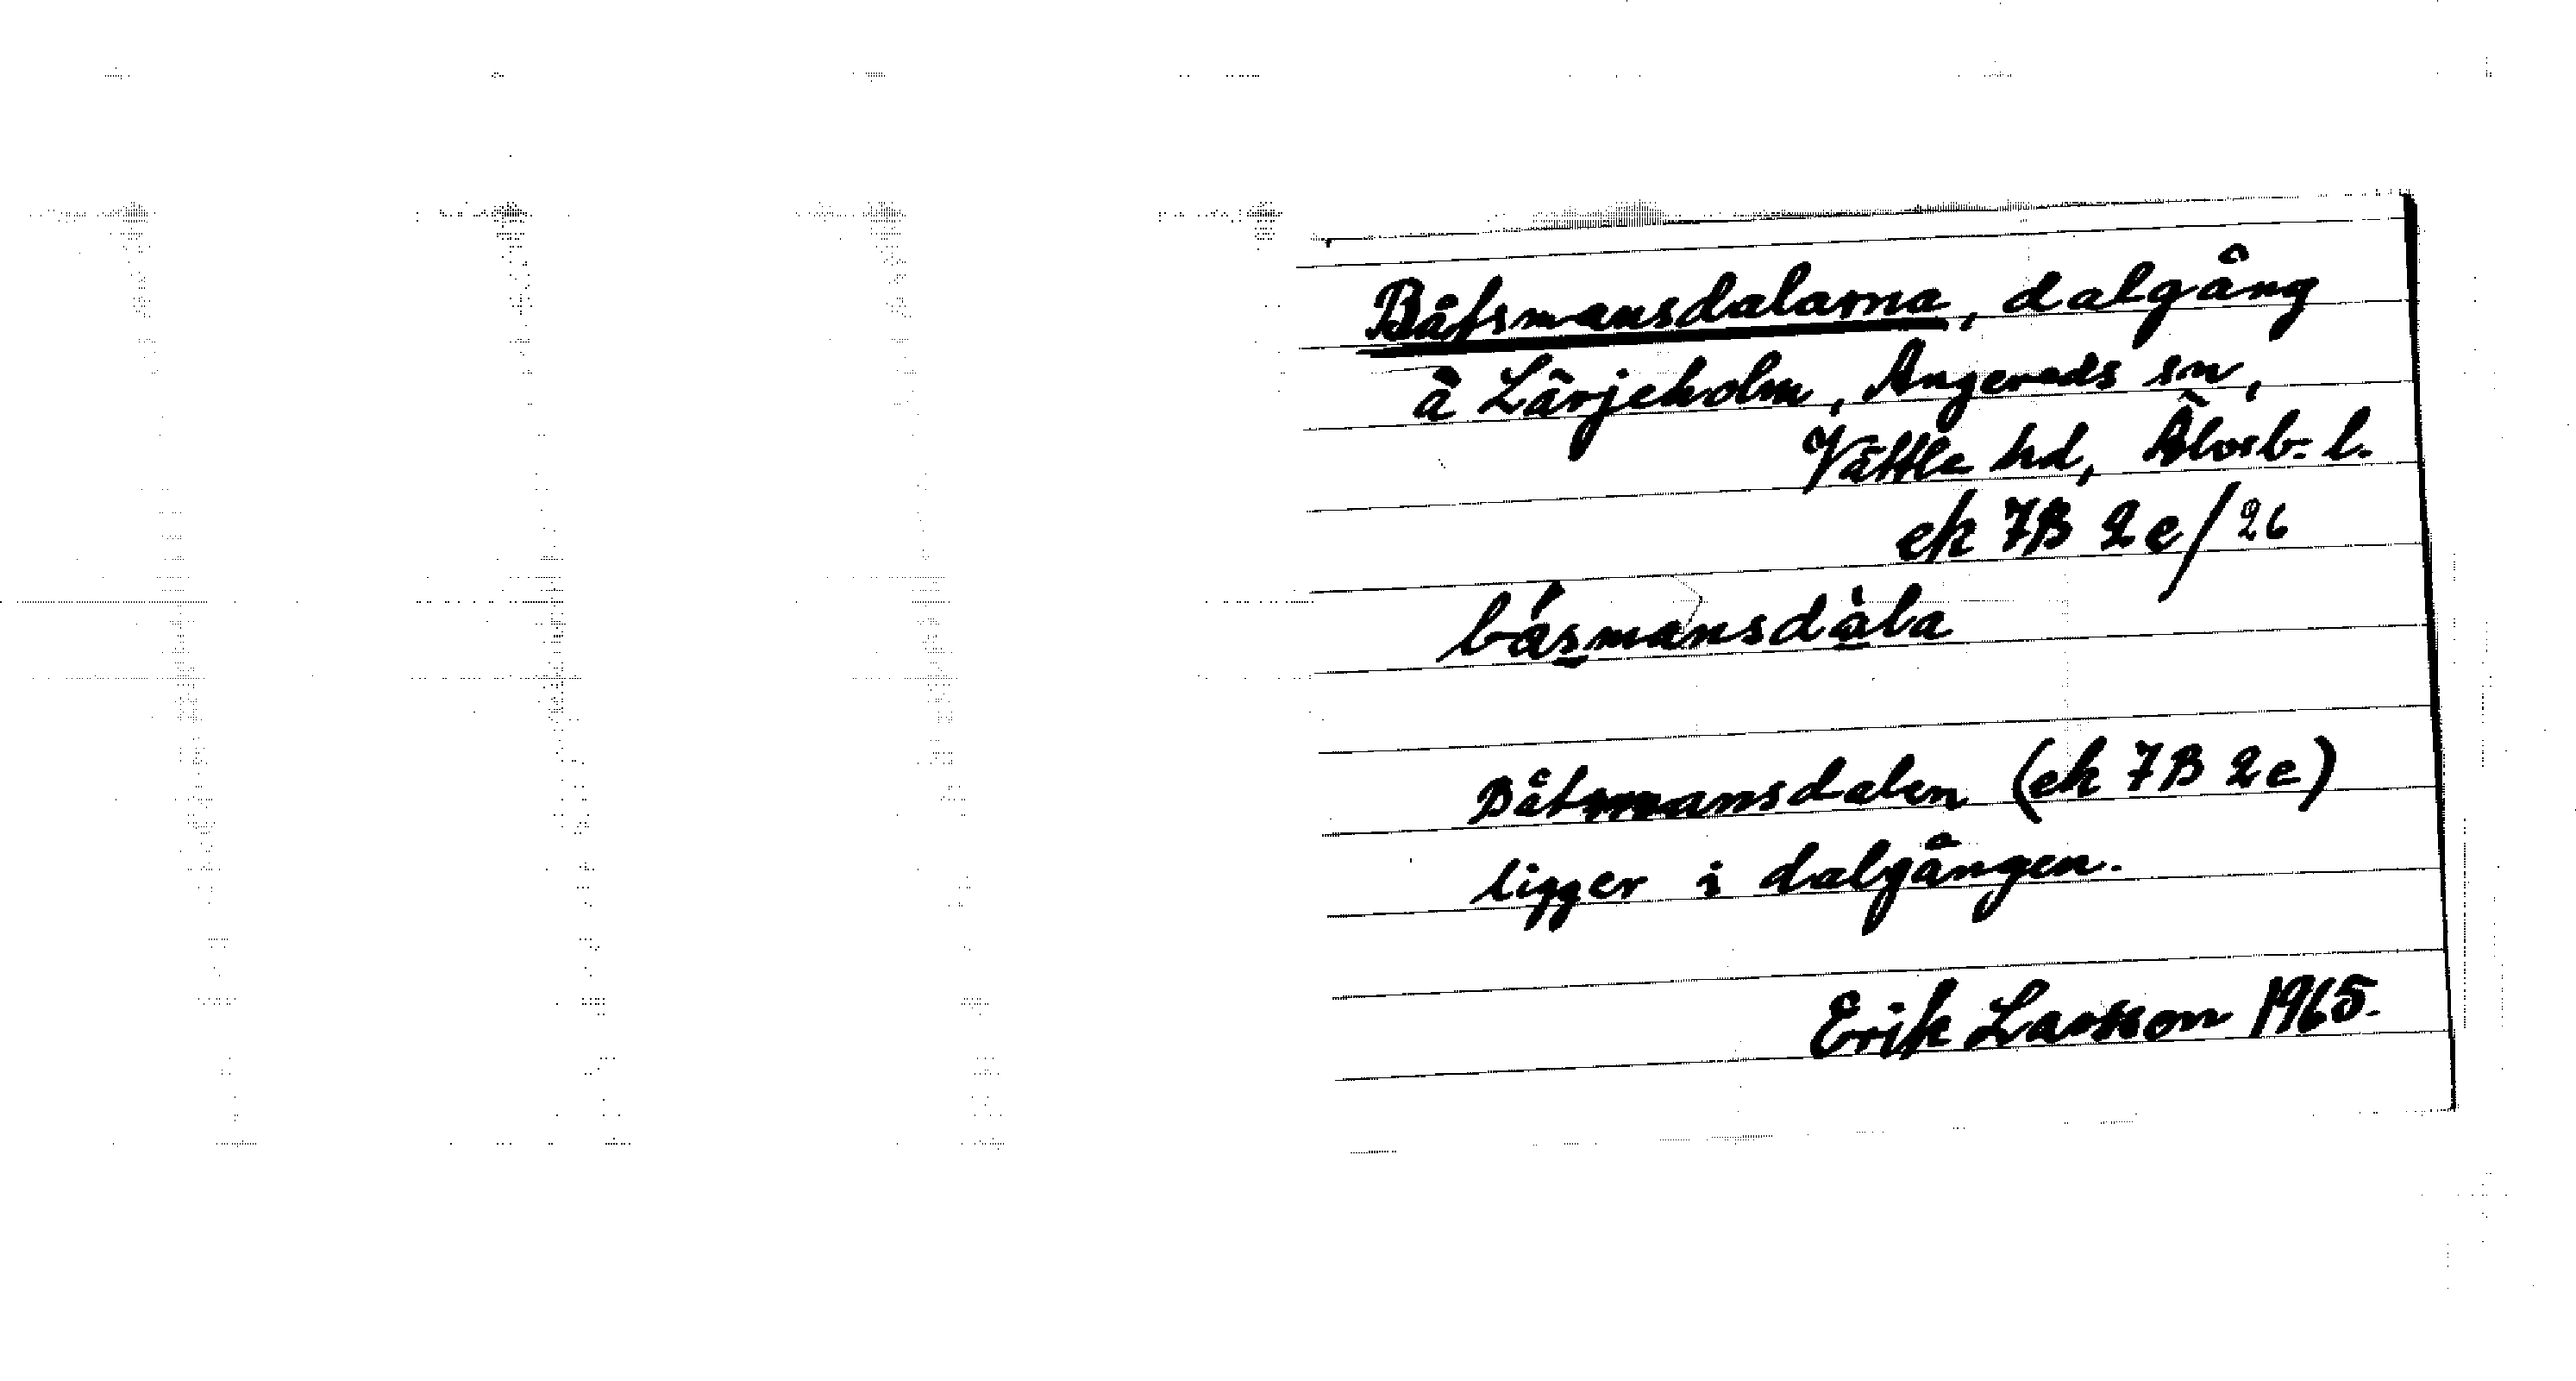 Båtsmansdalarna, dalgång
å Lärjeholm, Angereds sn,
Vättle hd, Älvsb. l.
ek 7B 2c/26
bá̊s̱mansdà̱la
Båtsmansdalen (ek 7B 2c)
ligger i dalgången.
Erik Larsson 1965.